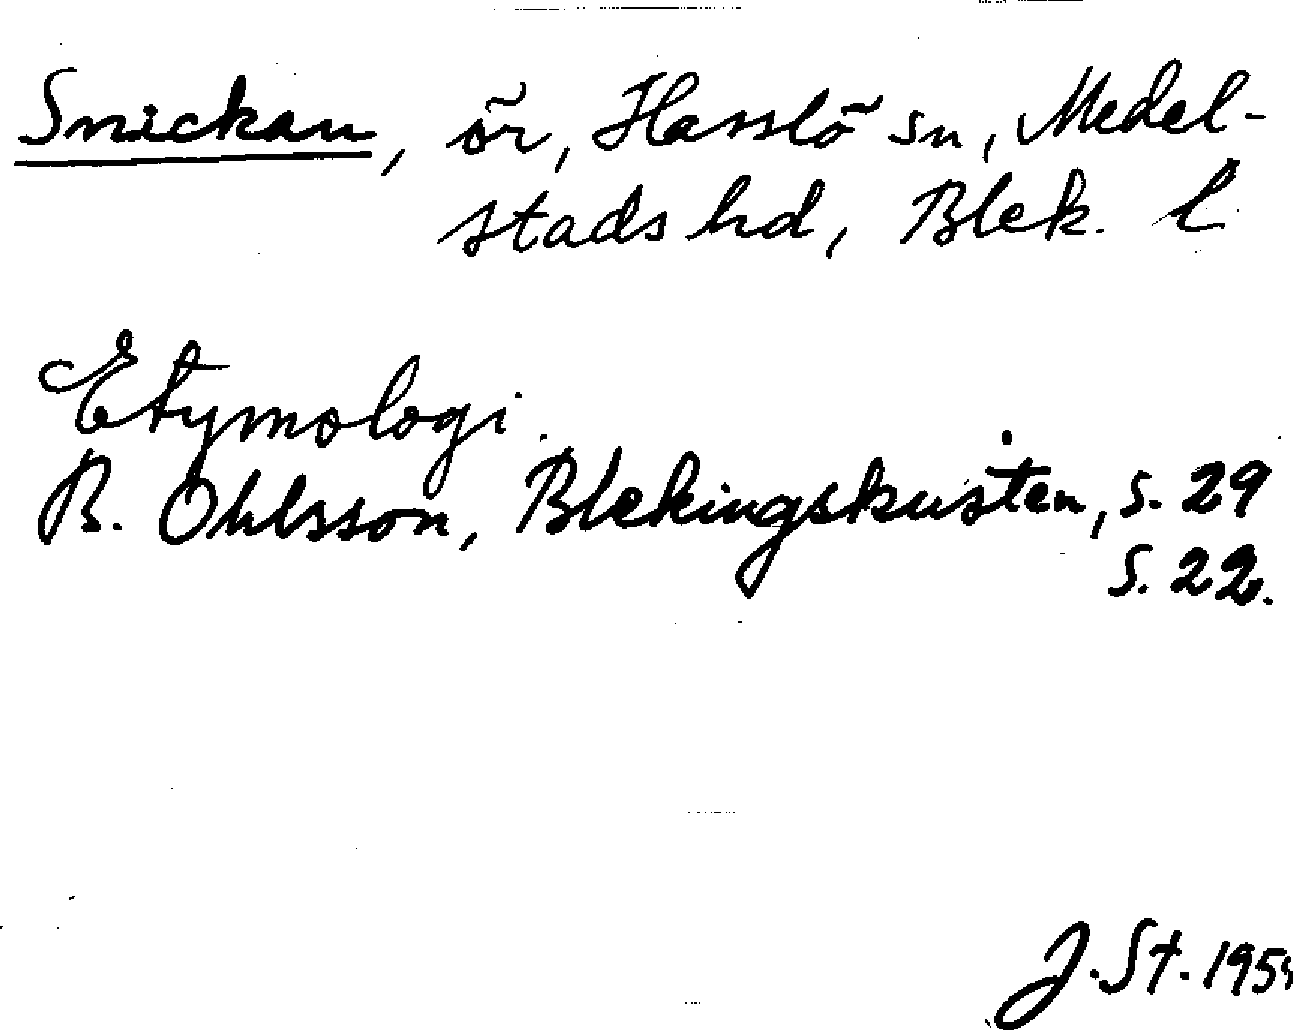 Snickan, ör, Hasslö sn, Medel-
stads hd, Blek. l
Etymologi
B. Ohlsson, Blekingskusten, s. 29
s. 22.
J. St.